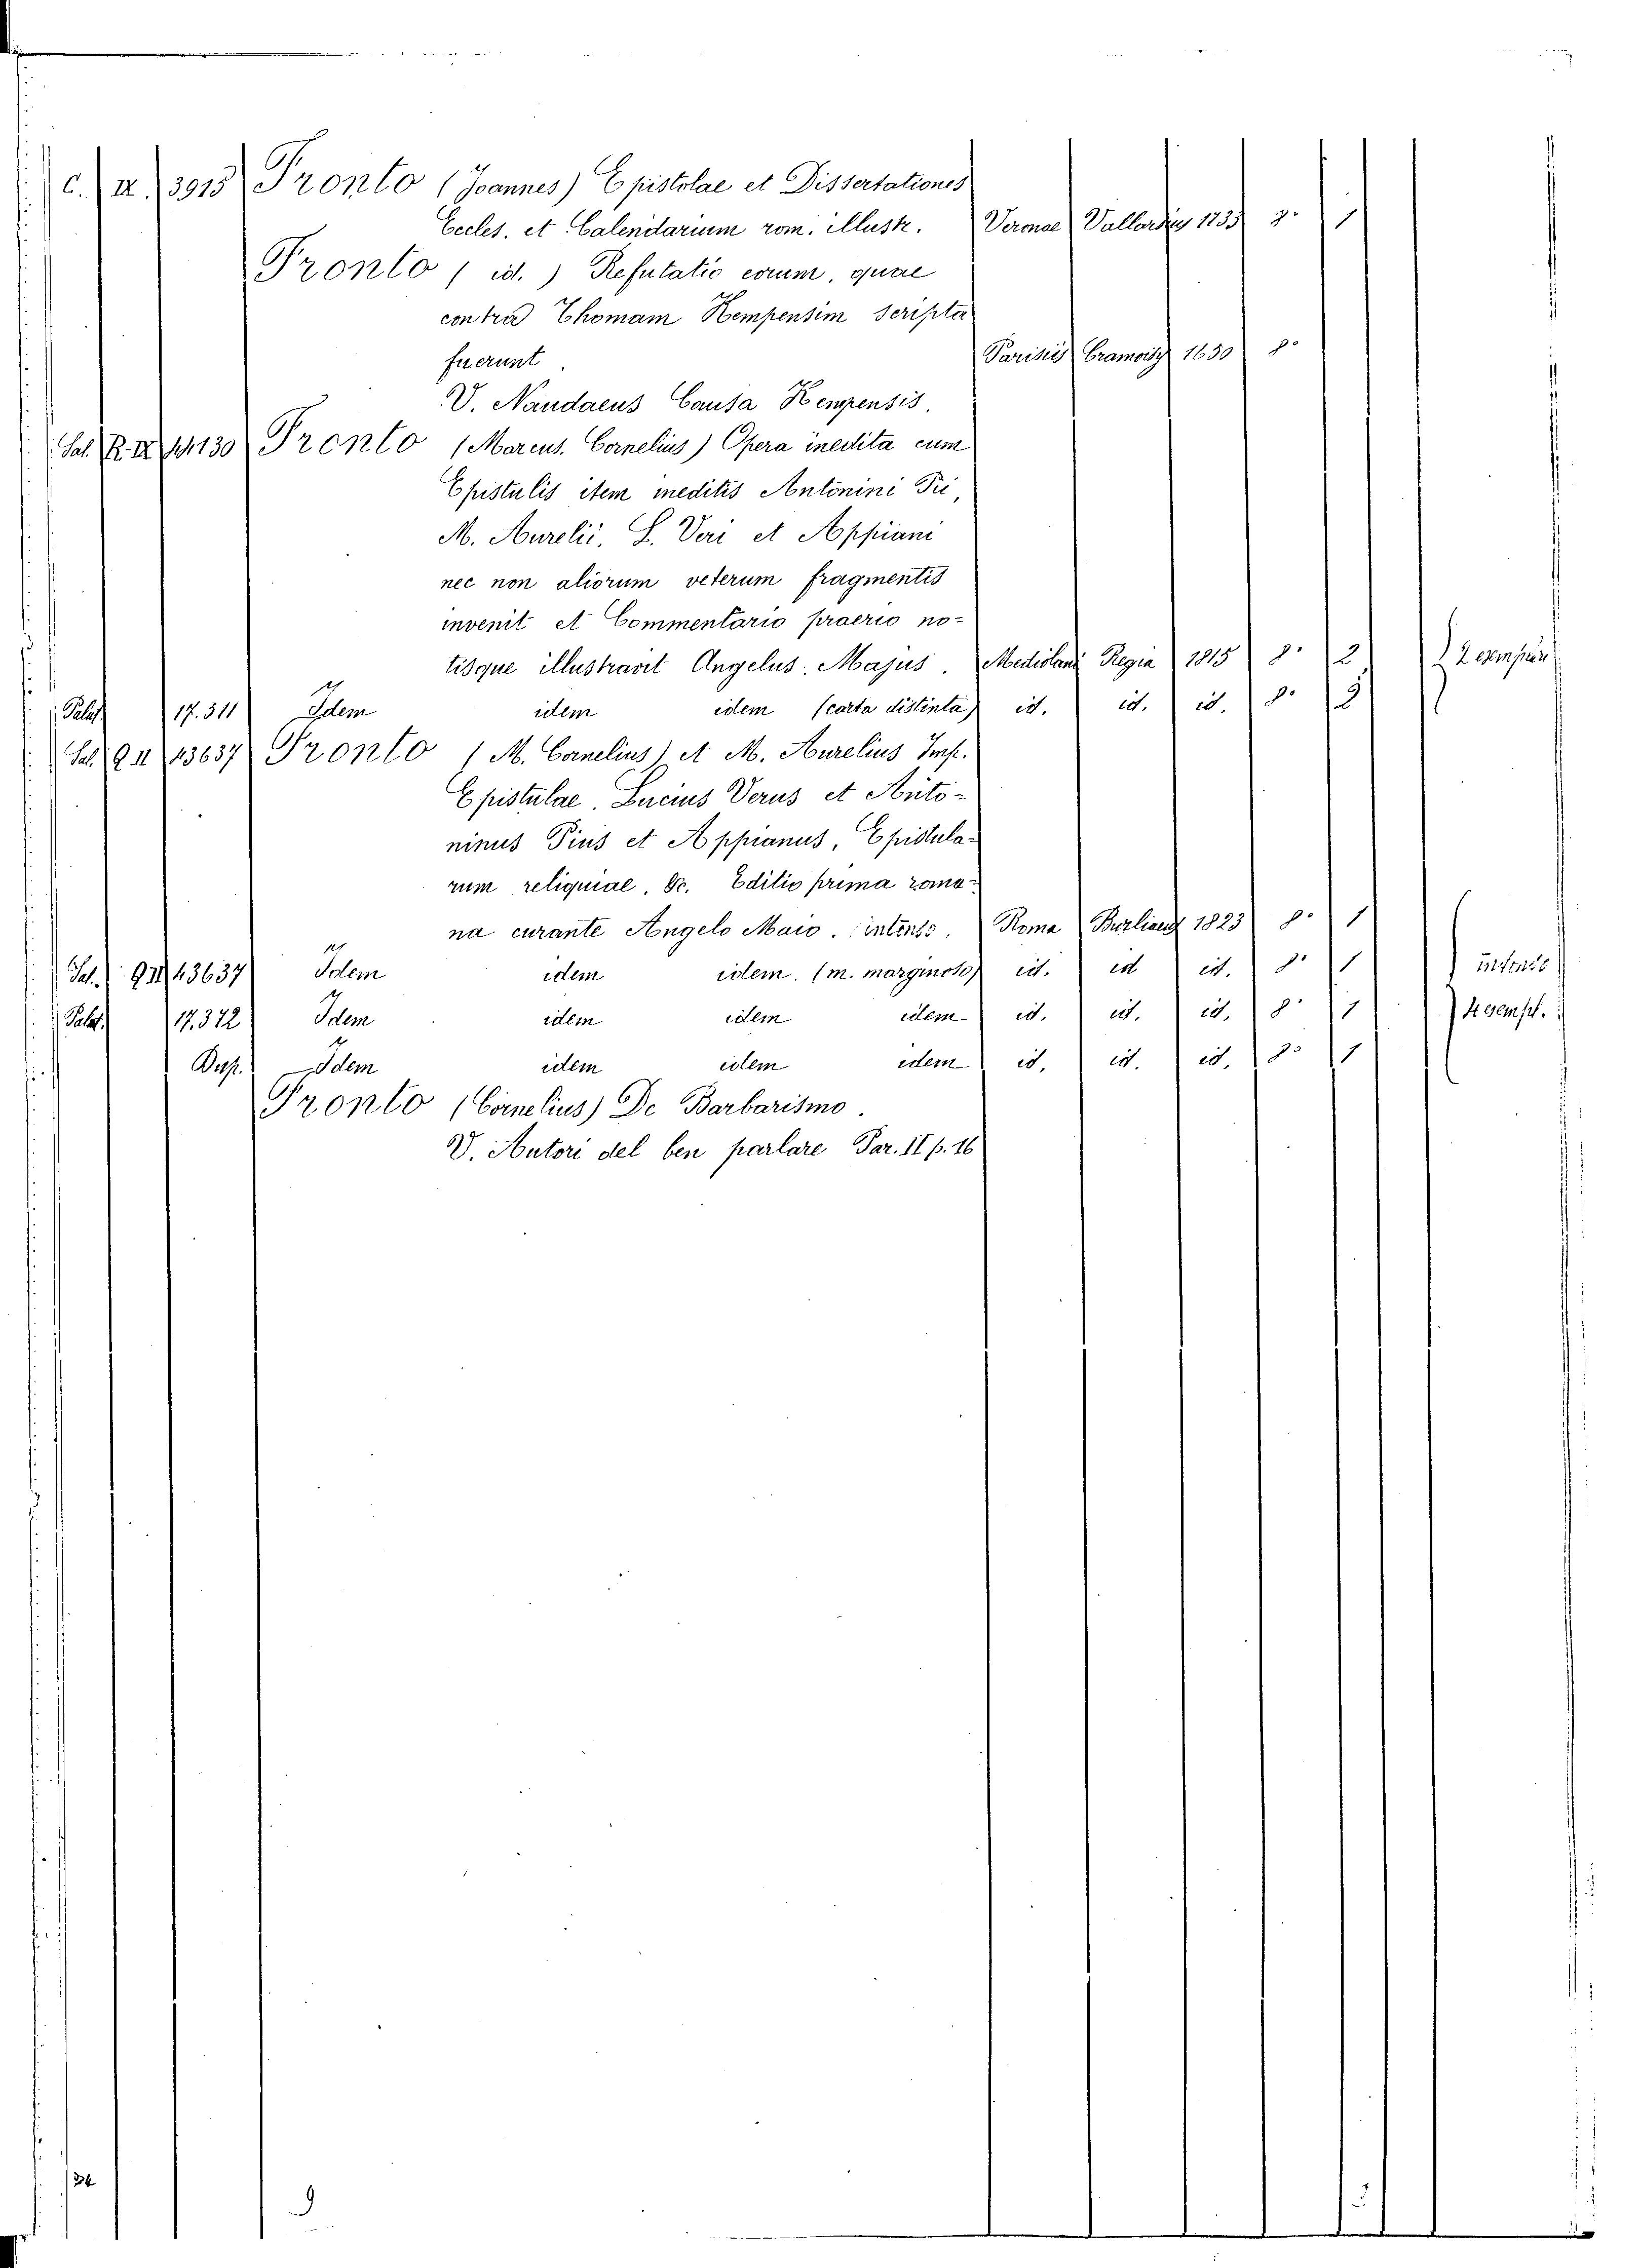 C. IX. 3915 Fronto (Joannes) Epistolae et Dissertationes
Eccles. et Calendarium rom. illustr. Veronae Vallarsius 1733 8° 1
Fronto ( id. ) Refutatio eorum, quae
contra Thomam Kempensim scripta
fuerunt Parisiis Cramoisy 1650 8°
V. Naudaeus Causa Kempensis.
Sal. R. IX 14130 Fronto (Marcus. Cornelius) Opera inedita cum
Epistulis item ineditis Antonini Pii,
M. Aurelii, L. Veri et Appiani
nec non aliorum veterum fragmentis
invenit et Commentario praevio no-
tisque illustravit Angelus Majus. Mediolani Regia 1815 8° 2
Palat. 17.311 Idem idem idem (carta distinta) id. id. id. 8° 2
Sal. Q. II 13637 Fronto (M. Cornelius) et M. Aurelius Imp.
Epistulae. Lucius Verus et Anto-
ninus Pius et Appianus, Epistula-
rum reliquiae. &c. Editio prima roma-
na curante Angelo Maio. intenso. Roma Burliaeus 1823 8° 1
Sal. Q II 13637 Idem idem idem. (m. marginoso) id. id id. 8° 1 intenso
Palat. 17.312 Idem idem idem idem id. id. id. 8° 1 4 esempl.
Dup. Idem idem idem idem id. id. id. 8° 1
Fronto (Cornelius) De Barbarismo.
V. Autori del ben parlare Par. II p. 16
9